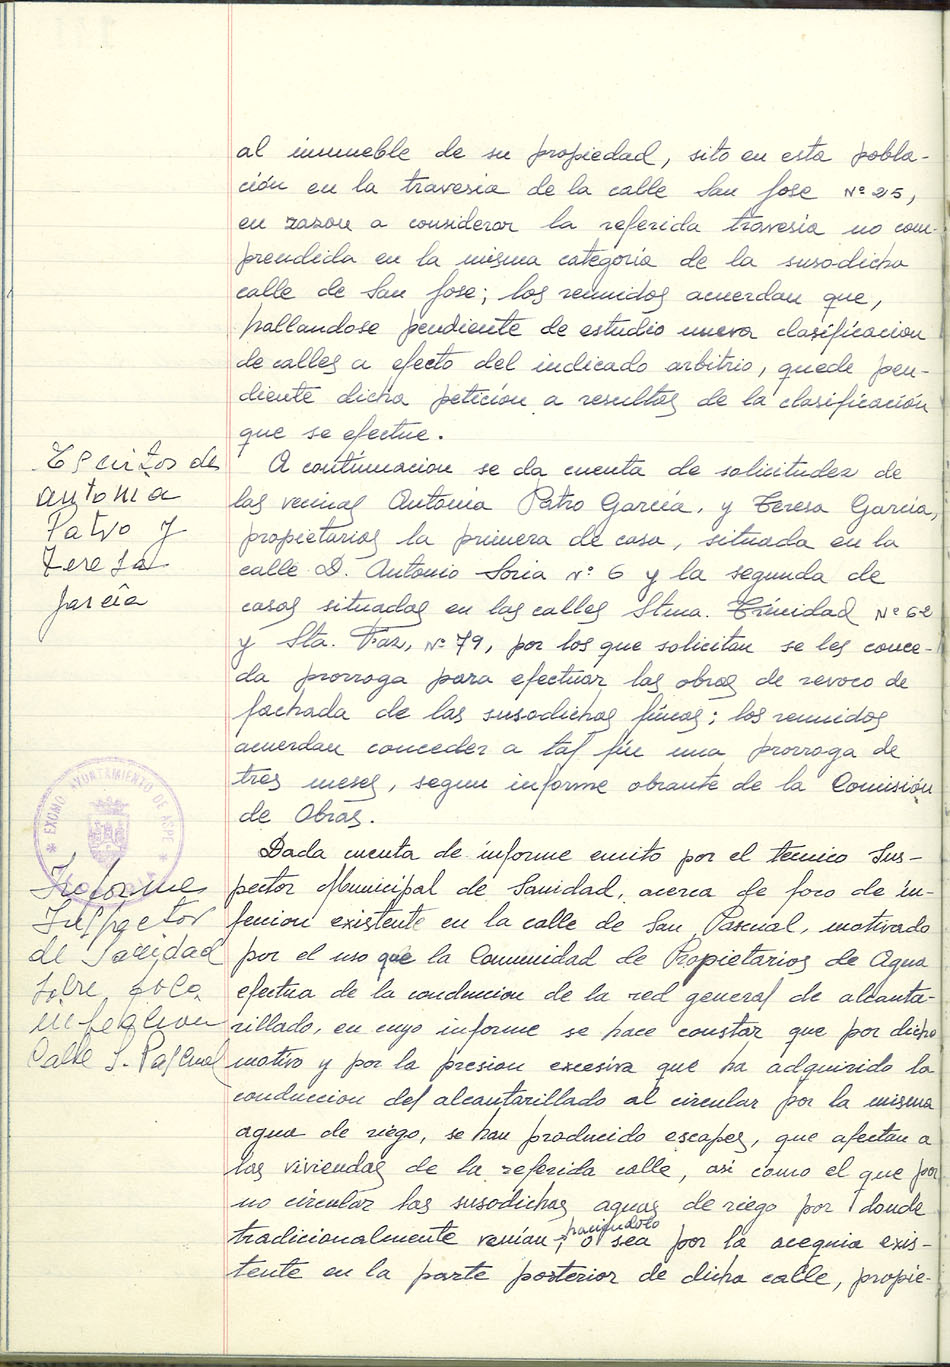 al inmueble de su propiedad, sito en esta pobla-
ción en la travesia de la calle San Jose Nº 25,
en razon a considerar la referida travesia no com-
prendida en la misma categoria de la susodicha
calle de San Jose; los reunidos acuerdan que,
hallandose pendiente de estudio nueva clasificacion
de calles a efecto del indicado arbitrio, quede pen-
diente dicha petición a resultas de la clasificación
que se efectue.
Escritos de
Antonia
Patro y
Teresa
García
A continuacion se da cuenta de solicitudes de
las vecinas Antonia Patro García, y Teresa García,
propietarias la primera de casa, situada en la
calle D. Antonio Soria nº 6 y la segunda de
casas situadas en las calles Stma. Trinidad Nº 62
y Sta. Faz, Nº 79, por los que solicitan se les conce-
da prorroga para efectuar las obras de revoco de
fachada de las susodichas fincas; los reunidos
acuerdan conceder a tal fin una prorroga de
tres meses, segun informe obrante de la Comisión
de Obras.
EXCMO AYUNTAMIENTO DE ASPE
Informe
Inspector
de Sanidad
sobre foco
infeccion
Calle S. Pascual
Dada cuenta de informe emito por el tecnico Ins-
pector Municipal de Sanidad, acerca de foco de in-
feccion existente en la calle de San Pascual, motivado
por el uso que la Comunidad de Propietarios de Agua
efectua de la conduccion de la red general de alcanta-
rillado, en cuyo informe se hace constar que por dicho
motivo y por la presion excesiva que ha adquirido la
conduccion del alcantarillado al circular por la misma
agua de riego, se han producido escapes, que afectan a
las viviendas de la referida calle, asi como el que por
no circular las susodichas aguas de riego por donde
haciendolo
tradicionalmente venían; o sea por la acequia exis-
tente en la parte posterior de dicha calle, propie-